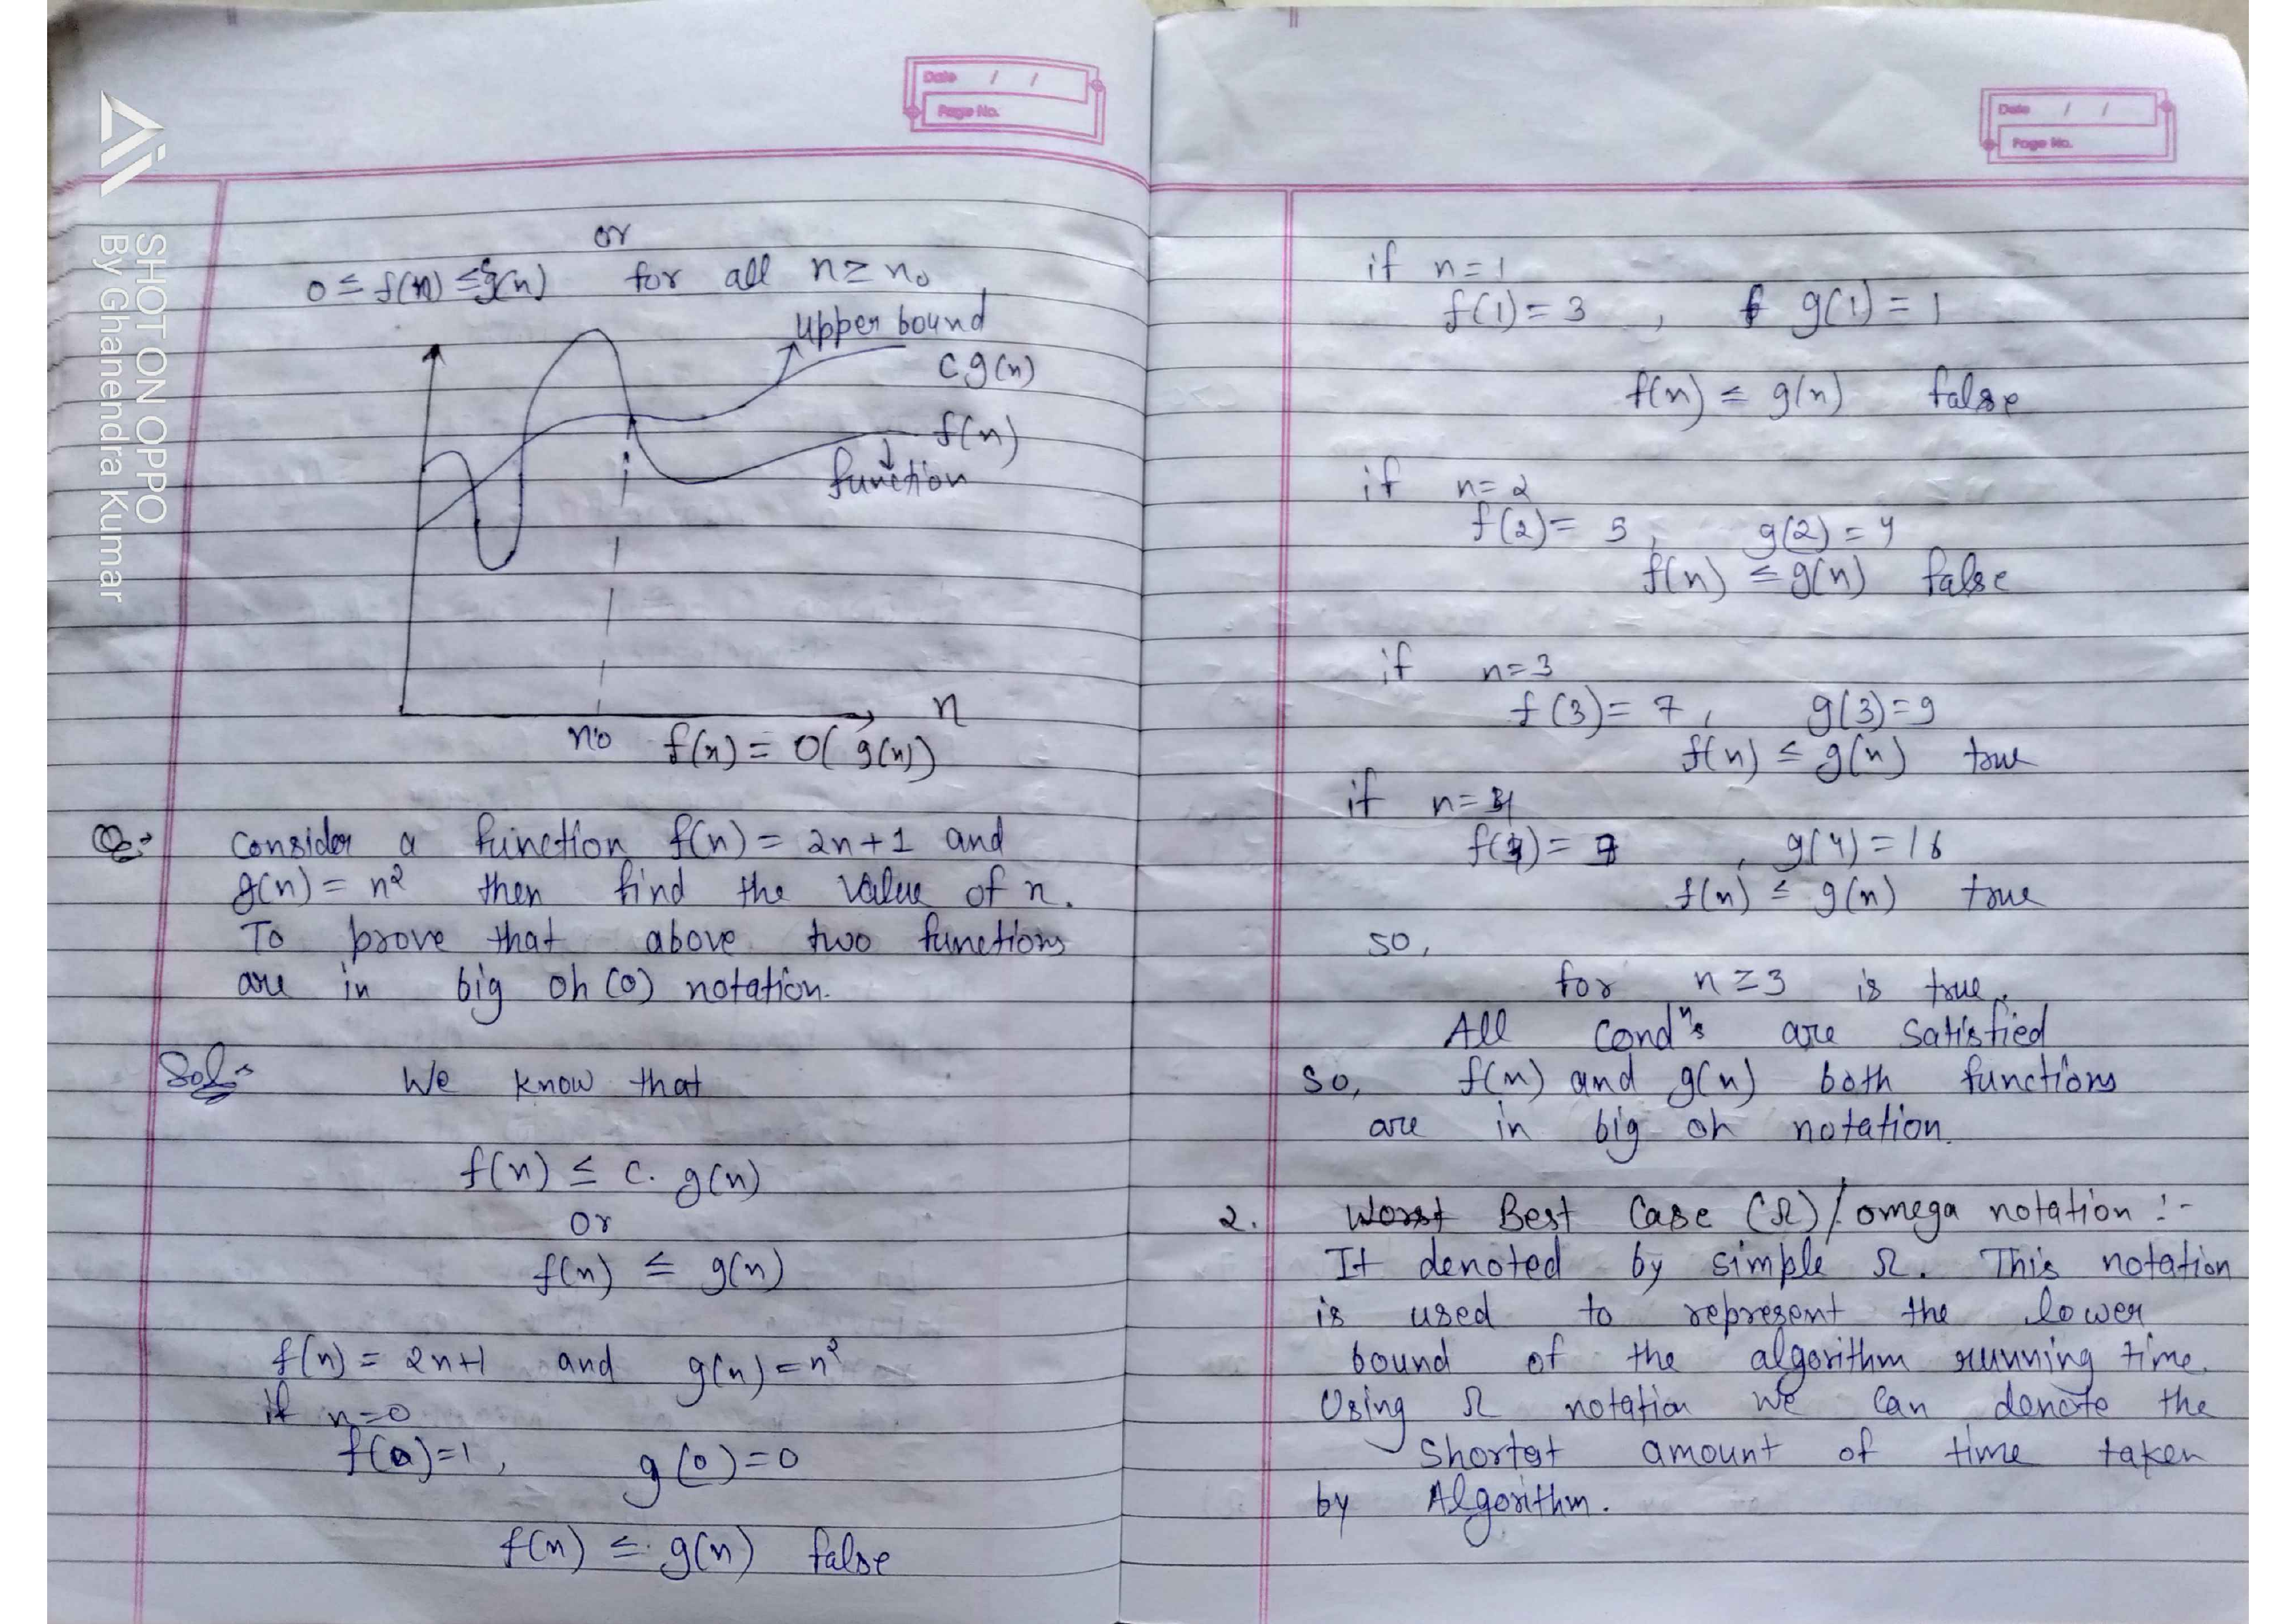 SHOT ON OPPO
By Ghanendra Kumar
Date / /
Page No.
or
0 ≤ f(n) ≤ cg(n) for all n ≥ n₀
upper bound
c g(n)
f(n)
function
n
n₀ f(n) = O( g(n))
Q:- Consider a function f(n) = 2n+1 and
g(n) = n² then find the value of n.
To prove that above two functions
are in big oh (O) notation.
Sol:- We know that
f(n) ≤ c. g(n)
Or
f(n) ≤ g(n)
f(n) = 2n+1 and g(n) = n²
if n=0
f(0)=1, g(0)=0
f(n) ≤ g(n) false
Date / /
Page No.
if n=1
f(1) = 3 , g(1) = 1
f(n) ≤ g(n) false
if n=2
f(2)= 5, g(2) = 4
f(n) ≤ g(n) false
if n=3
f(3)= 7, g(3)=9
f(n) ≤ g(n) true
if n=4
f(4)= 9 , g(4)=16
f(n) ≤ g(n) true
so,
for n ≥ 3 is true.
All Condⁿs are satisfied
so, f(n) and g(n) both functions
are in big oh notation.
2. Worst Best Case (Ω) / omega notation :-
It denoted by simple Ω. This notation
is used to represent the lower
bound of the algorithm running time.
Using Ω notation we can denote the
shortest amount of time taken
by Algorithm.